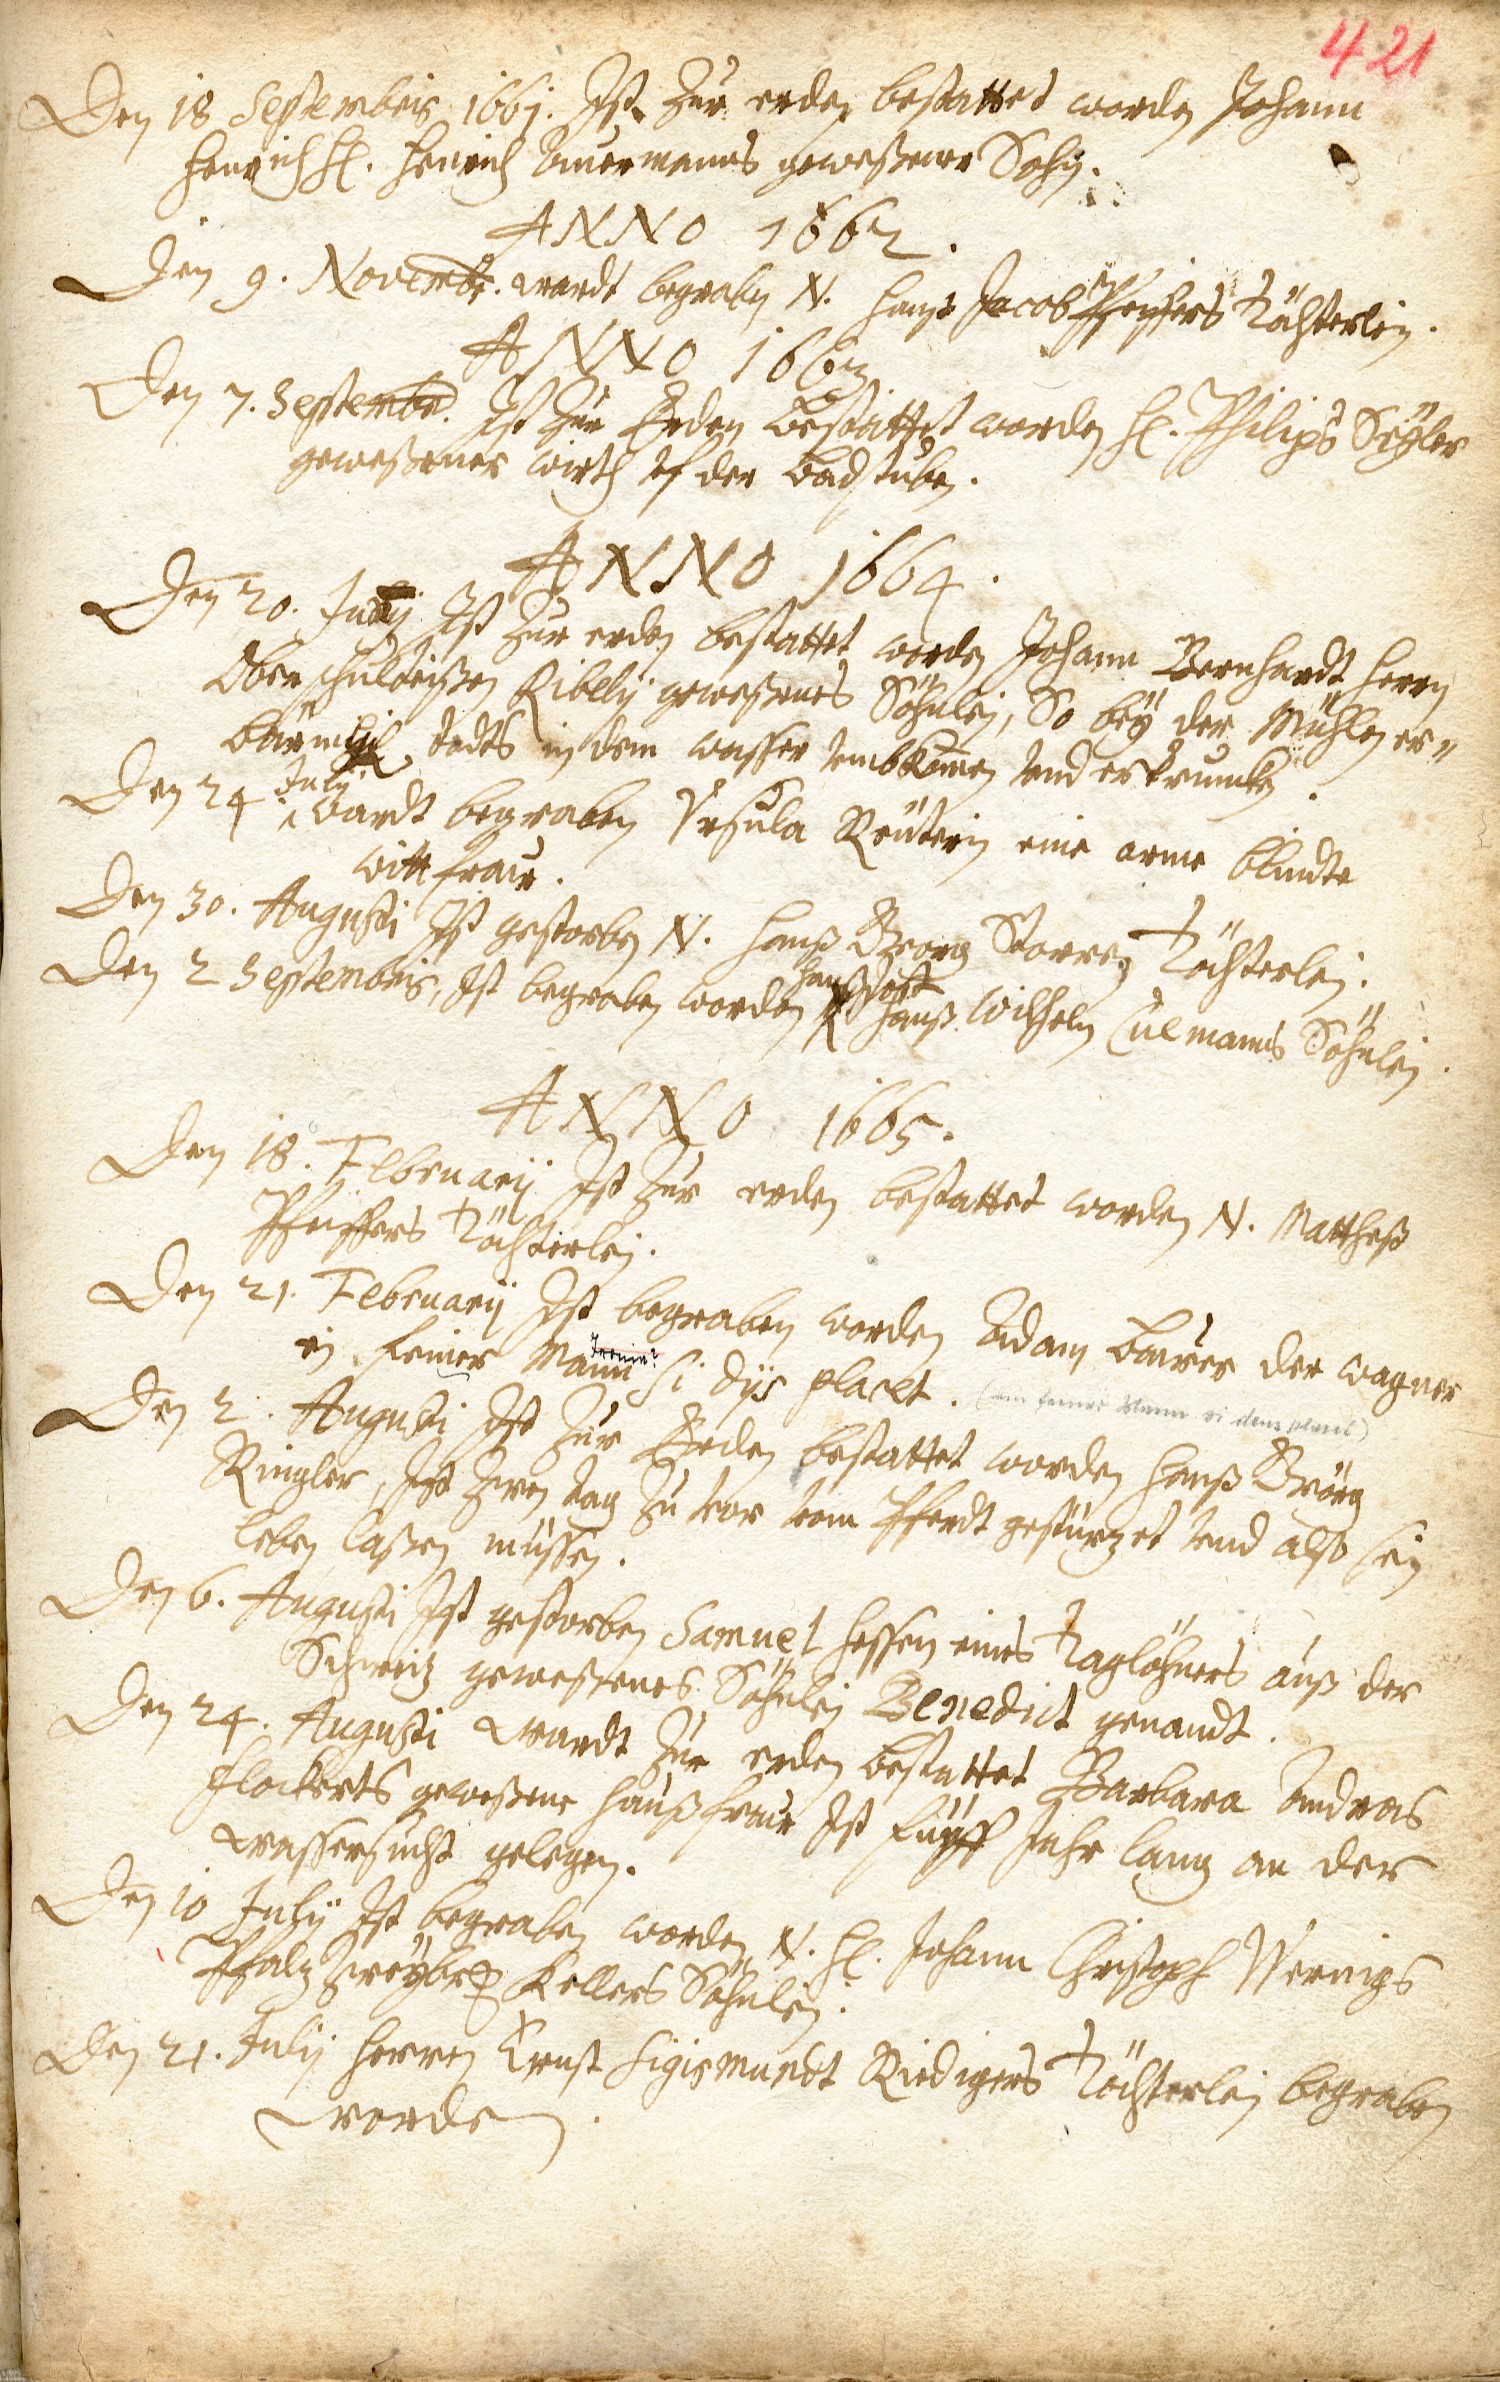 421
Den 18 Septembris 1661. Ist zur erden bestattet worden Johann
Henrich H. Henrich Auermanns geweßener Sohn.
ANNO 1662.
Den 9. Novembr. wardt begraben N. Hanß Jacob Pfeiffers Töchterlein.
ANNO 1663
Den 7. Septembr. Ist zur Erden bestattet worden H. Philips Sigler
geweßener wirth uf der Badstuben.
ANNO 1664.
Den 20. July Ist zur erden bestattet worden Johann Bernhardt herrn
Oberschultheißen Kibely geweßenes Söhnlein, So bey der Mühlen er„
bärmlich todts in dem wasser umbkommen und ertruncken.
Den 24 July wardt begraben Ursula Reüterin eine arme blindte
wittfraw.
Den 30. Augusti Ist gestorben N. Hanß Georg Storren Töchterlein.
Den 2 Septembris, Ist begraben worden Hanß Jost Hanß Wilhelm Culmanns Söhnlein.
ANNO 1665.
Den 18. Februarij Ist zur erden bestattet worden N. Mattheß
Pfeiffers Töchterlein.
Den 21. Februarij Ist begraben worden Adam Baurer der wagner
ein feiner Mann si dijs placet. (ein feiner Mann si deus placet)
Ironie?
Den 2. Augusti Ist zur Erden bestattet worden Hanß Geörg
Ringler, Ist zween tag zuvor vom Pferdt gestürzet und also sein
leben laßen müssen.
Den 6. Augusti Ist gestorben Samuel Hessen eines Taglöhners auß der
Schweitz geweßenes Söhnlein Benedict genandt.
Den 24. Augusti wardt zur erden bestattet Barbara Andreas
Flockerts geweßene haußfraw Ist fünff Jahr lang an der
wassersucht gelegen.
Den 10 July Ist begraben worden N. H. Johann Christoph Wernigs
Pfaltz Zweybr. Kellers Söhnlein.
Den 21. July Herren Ernst Sigismundt Riedigers Töchterlein begraben
worden.